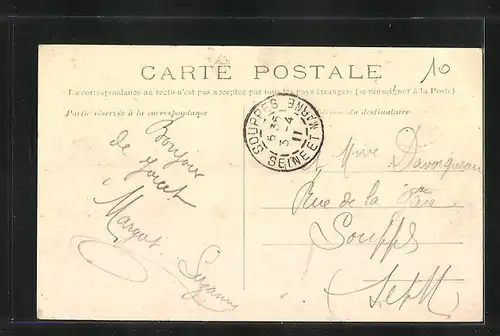 CARTE POSTALE
10
La correspondance au recto n'est pas acceptée par tous les pays étrangers (se renseigner à la Poste)
Partie réservée à la correspondance
Adresse du destinataire
SOUPPES SEINE ET MARNE
6 35
3 - 4
11
Bonjour
de
Margot
Suzanne
Rue de la Paix
Souppes
S et M